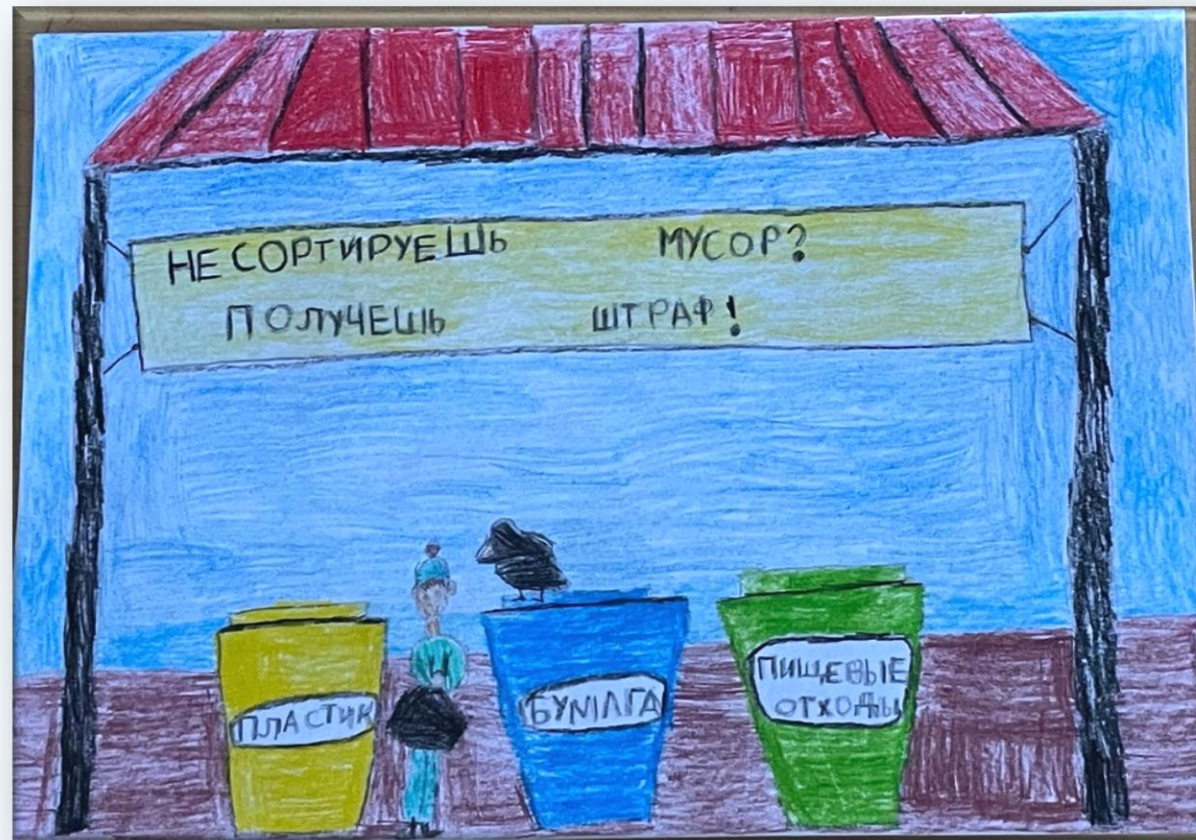 НЕ СОРТИРУЕШЬ МУСОР?
ПОЛУЧЕШЬ ШТРАФ!
ПЛАСТИК
БУМАГА
ПИЩЕВЫЕ
ОТХОДЫ